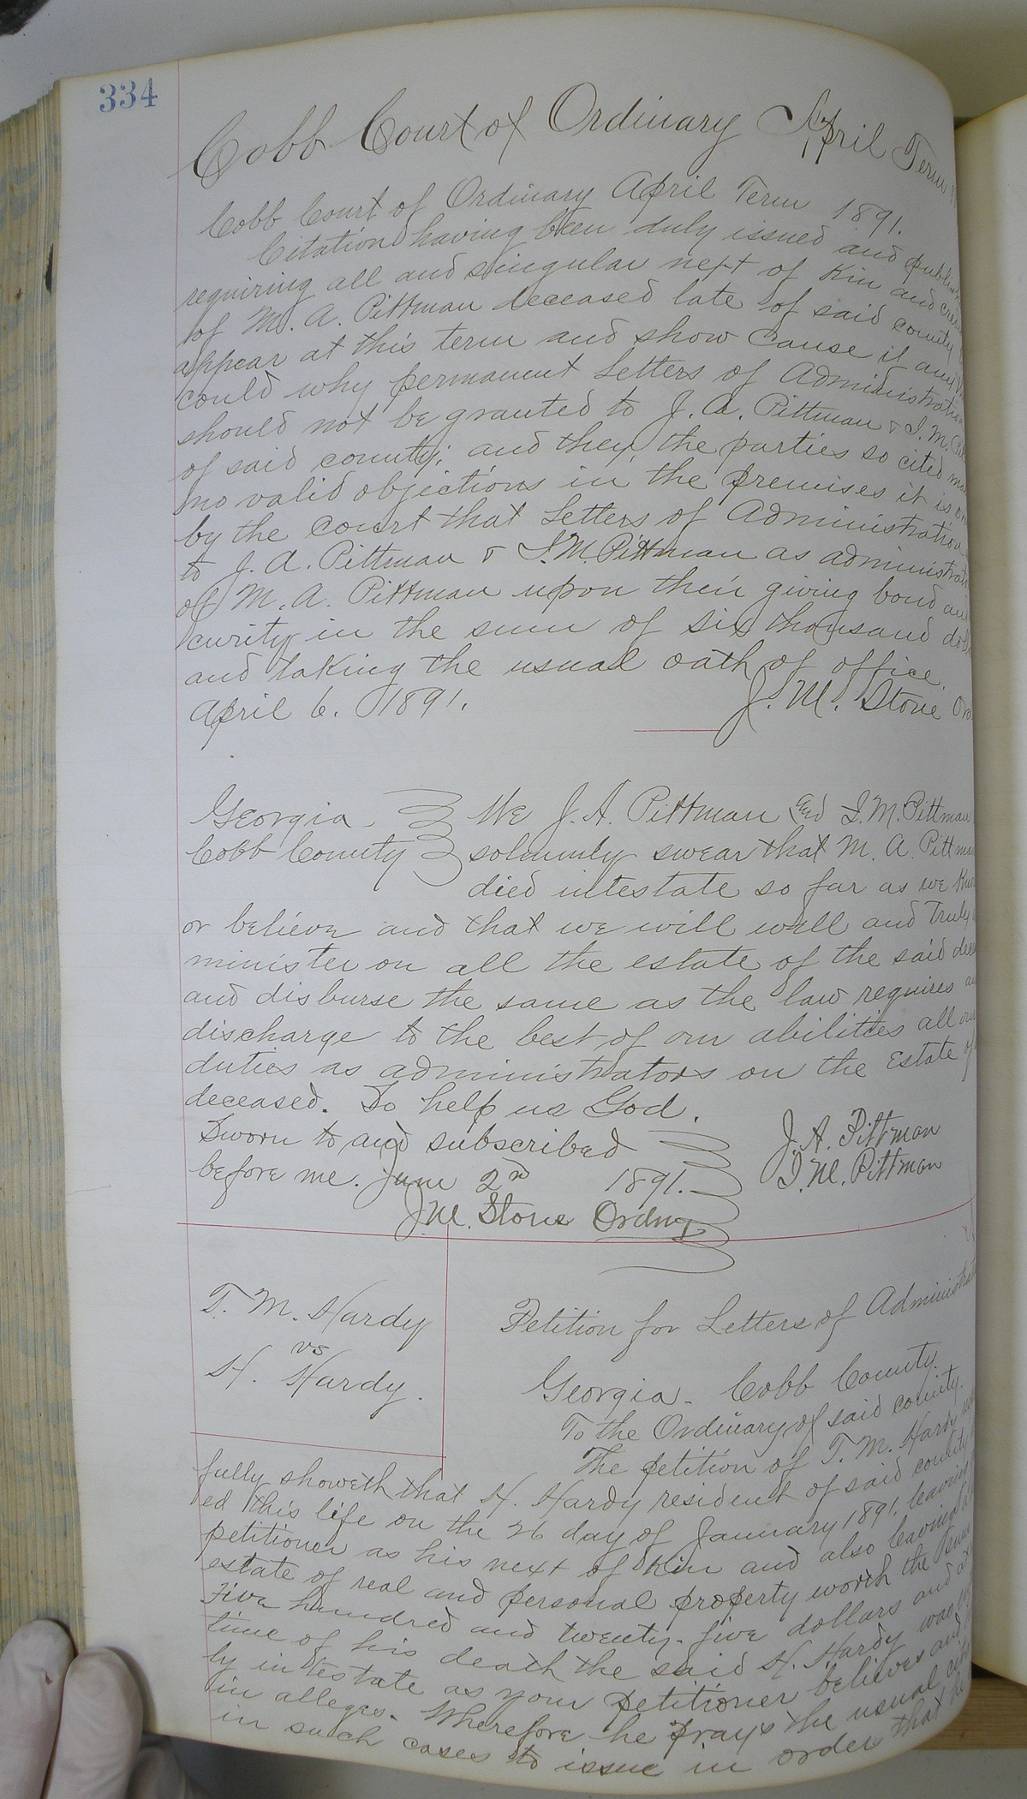 334
Cobb Court of Ordinary April Term
Cobb Court of Ordinary April Term 1891.
Citation having been duly issued and
requiring all and singular next of Kin and
of M. A. Pittman deceased late of said county
appear at this term and show cause if any
could why permanent Letters of Administration
should not be granted to J. A. Pittman & I. M.
of said county; and they the parties so cited
no valid objections in the premises it is
by the court that Letters of Administration
to J. A. Pittman & I. M. Pittman as
of M. A. Pittman upon their giving bond
curity in the sum of six thousand
and taking the usual oath of office.
April 6. 1891. J. M. Stone
Georgia We J. A. Pittman and I. M. Pittman
Cobb County solemnly swear that M. A.
died intestate so far as we
or believe and that we will well and truly
minister on all the estate of the said
and disburse the same as the law requires
discharge to the best of our abilities all
duties as administrators on the Estate of
deceased. So help us God.
Sworn to and subscribed J. A. Pittman
before me. June 2nd 1891. I. M. Pittman
J. M. Stone Ordny
T. M. Hardy
vs
H. Hardy.
Petition for Letters of
Georgia. Cobb County.
To the Ordinary of said county.
The petition of T. M. Hardy
fully showeth that H. Hardy resident of said county
ed this life on the 26 day of January 1891, leaving
petitioner as his next of Kin and also leaving
estate of real and personal property worth the
Five hundred and twenty-five dollars and
time of his death the said H. Hardy was
ly intestate as your petitioner believes and
in alleges. Wherefore he prays the usual
in such cases to issue in order that